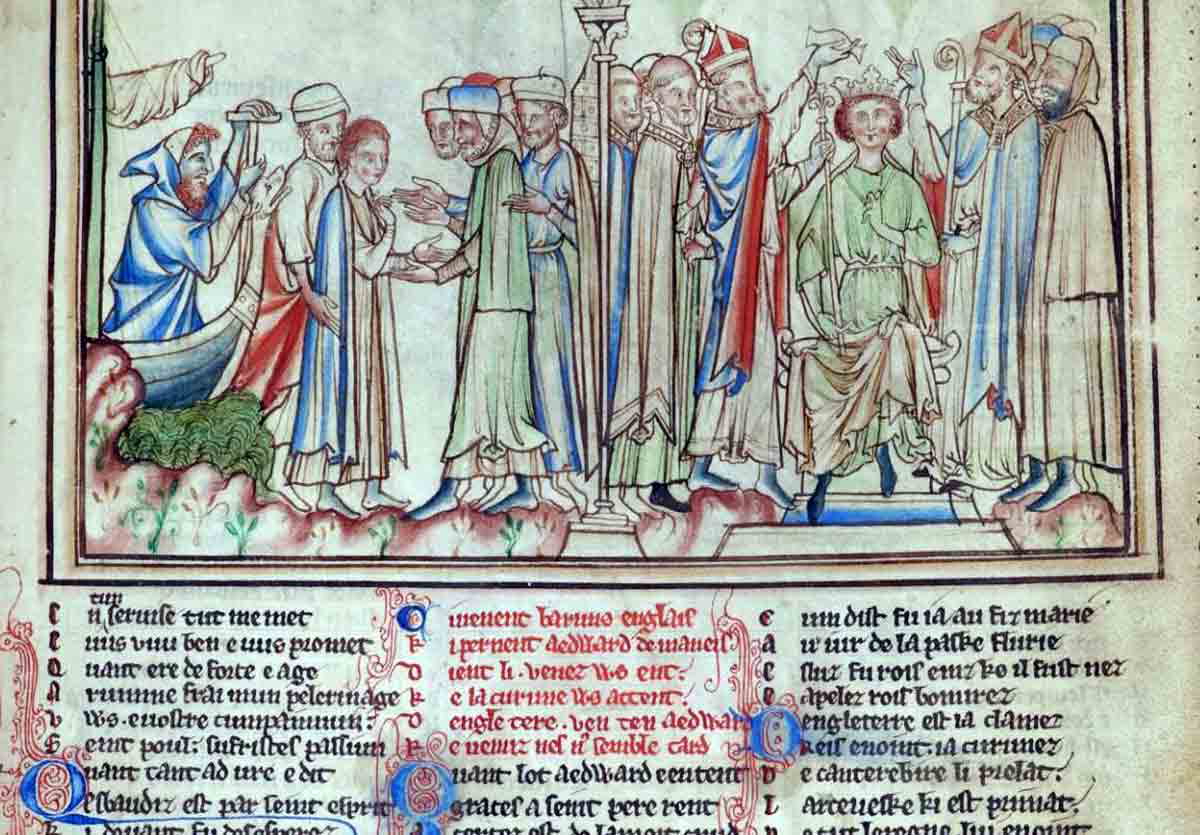 tup
E n servise tut me met
E nus vuu ben e uus promet
Q uant ere de forte e age
A rumme frai mun pelerinage
U us e nostre cumpainnun
S eint pout sufristes passiun
Q uant tant ad ure e dit
esbaudiz est par seint esprit
K i devant fu desesperez
O i venent baruns engleis
K i pernent aedward demaneis
D ient li venez ws ent
K e la curune ws atent
D engletere ven ten aedward
K e venir nes semble tard
Q uant lot aedward e entent
G races a seint pere rent
cum dist fu ia au fiz marie
A u iur de la paske flurie
E sliz fu rois einz ko il fust nez
E apelez rois bonurez
D engleterre est ia clamez
Reis enoint ia curunez
D e canterebire li prelat
L arceveske ki est primat